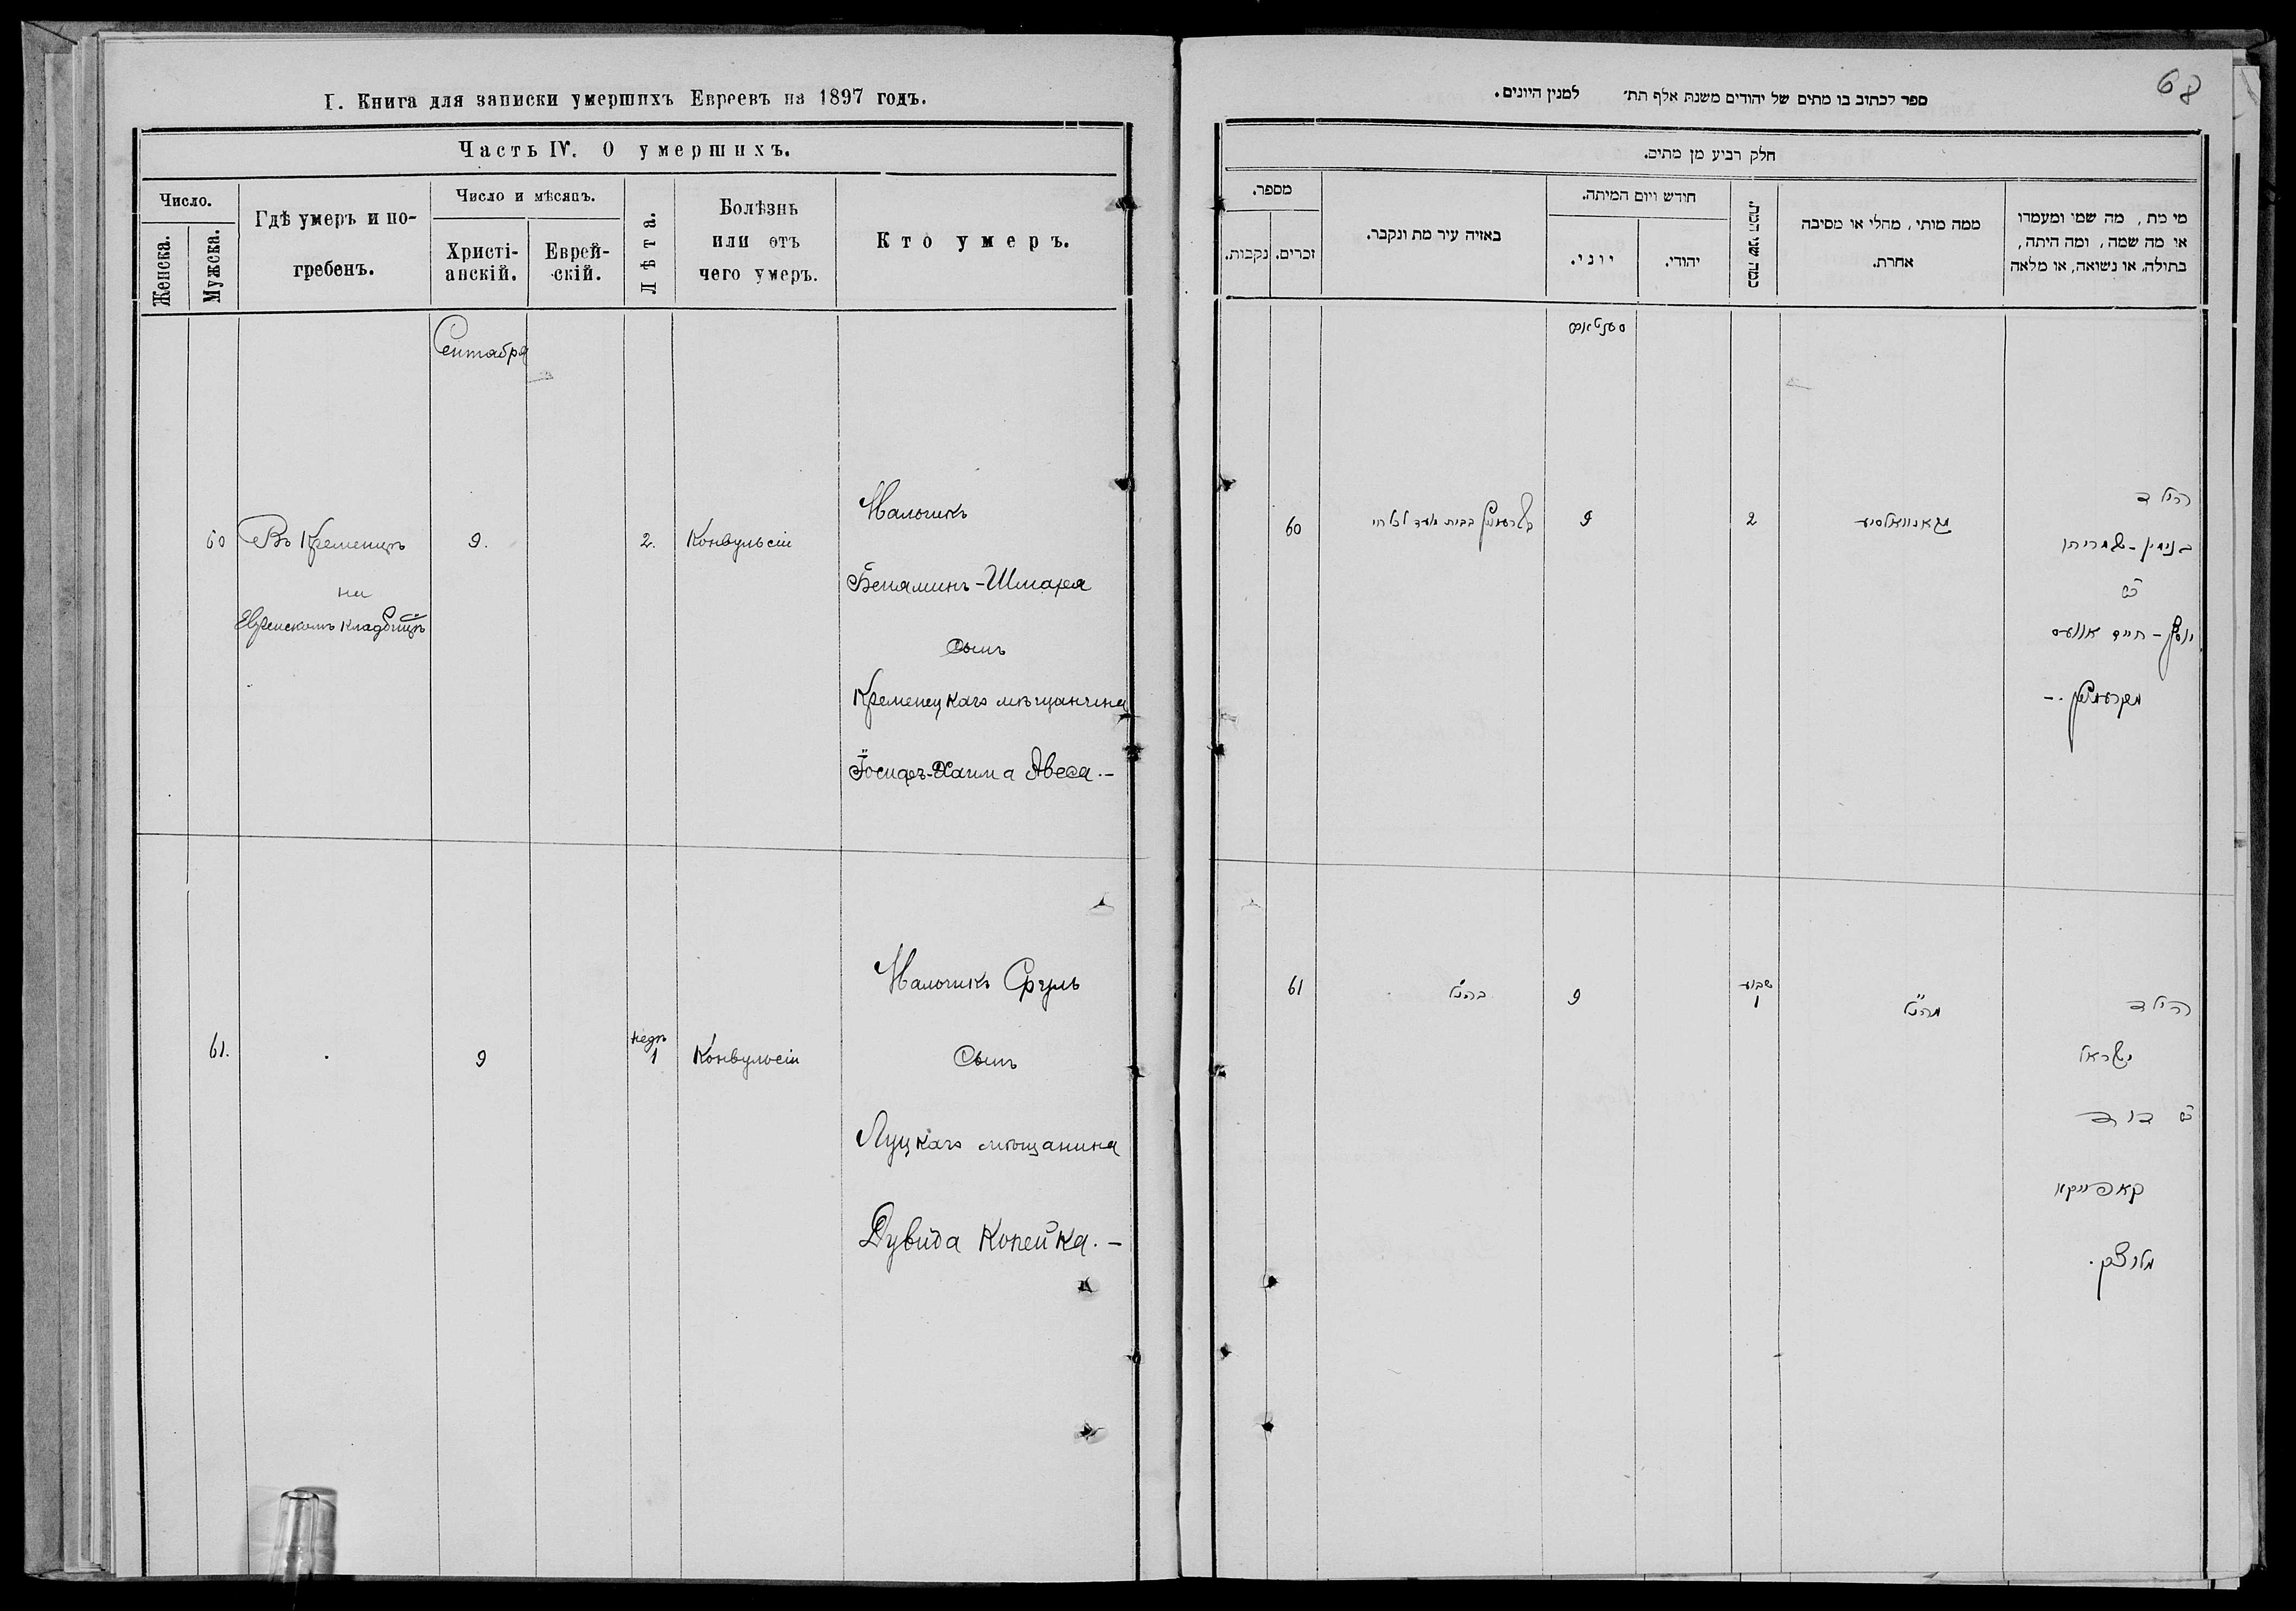 I. Книга для записки умершихъ Евреевъ на 1897 годъ.
Часть IV. О умершихъ.
Число.
Женска.
Мужска.
Гдѣ умеръ и погребенъ.
Число и мѣсяцъ.
Христіанскій.
Еврейскій.
Лѣта.
Болѣзнь
или отъ
чего умеръ.
Кто умеръ.
Сентября
60
Въ Кременцѣ
на
Еврейскомъ кладбищѣ
9.
2.
Конвульсіи
Мальчикъ
Беньяминъ-Шмарья
сынъ
Кременецкаго мѣщанина
Іосифъ-Хаима Авеса.-
61.
9
недѣ
1
Конвульсіи
Мальчикъ Сруль
Сынъ
Луцкаго мѣщанина
Дувида Копейка.-
68
ספר לכתוב בו מתים של יהודים משנת אלף תת׳ למנין היונים.
חלק רביע מן מתים.
מספר.
נקבות.
זכרים.
באזיה עיר מת ונקבר.
חודש ויום המיתה.
יוני.
יהודי.
כמה שני המת.
ממה מותי, מחלי או מסיבה
אחרת.
מי מת, מה שמו ומעמדו
או מה שמה, ומה היתה,
בתולה, או נשואה, או מלאה
60
9
2
הילד
בנימין-שמריהו
יוסף-חיים אוועס
מקרעמניץ.-
61
כהנ״ל
9
שבוע
1
מהנ״ל
הילד
ישראל
דוד
קאפייקא
מלוצק.